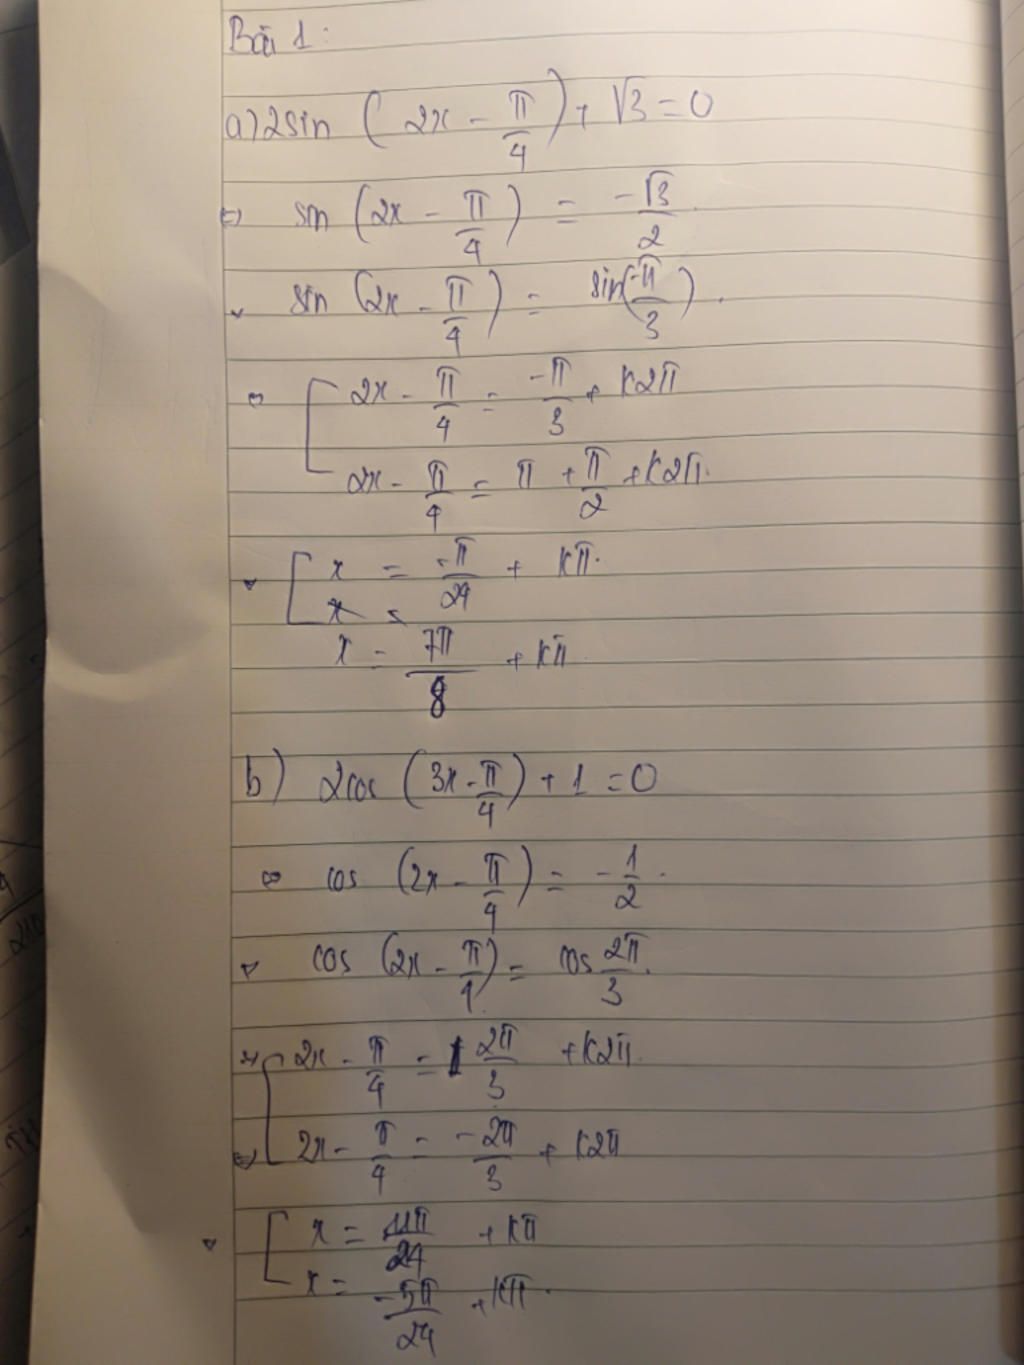 Bài 1:
a) 2sin (2x - π/4) + √3 = 0
⇔ sin (2x - π/4) = -√3/2
⇔ sin (2x - π/4) = sin(-π/3).
⇔ [ 2x - π/4 = -π/3 + k2π
2x - π/4 = π + π/2 + k2π.
⇔ [ x = -π/24 + kπ.
x = 7π/8 + kπ
b) 2cos (3x - π/4) + 1 = 0
⇔ cos (2x - π/4) = -1/2.
⇔ cos (2x - π/4) = cos 2π/3.
⇔ [ 2x - π/4 = 2π/3 + k2π.
⇔ 2x - π/4 = -2π/3 + k2π
⇔ [ x = 11π/24 + kπ
x = -5π/24 + kπ.